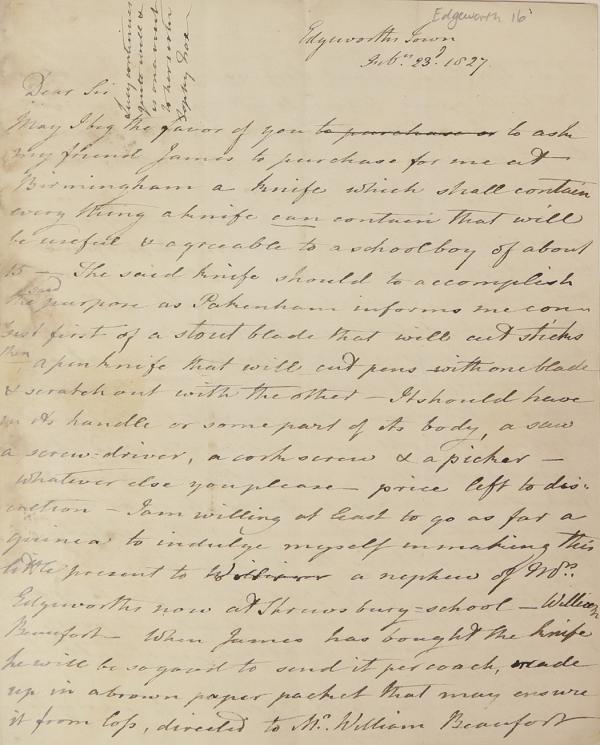 Edgeworth 16
Edgeworths Town
Febry. 23d. 1827
Lucy continues
quite well &
is on a visit
to her sister
Sophy Fox
Dear Sir
May I beg the favor of you to purchase or to ask
my friend James to purchase for me at
Birmingham a knife which shall contain
every thing a knife can contain that will
be useful & agreeable to a schoolboy of about
15 — The said knife should to accomplish
the said purpose as Pakenham informs me con-
sist first of a stout blade that will cut sticks
then a penknife that will cut pens with one blade
& scratch out with the other — It should have
in its handle or some part of its body, a saw
a screw-driver, a cork screw & a picker —
whatever else you please — price left to dis-
cretion — I am willing at least to go as far a
guinea to indulge myself in making this
little present to William a nephew of Mrs.
Edgeworths now at Shrewsbury-school — William
Beaufort — When James has bought the knife
he will be so good to send it per coach, made
up in a brown paper packet that may ensure
it from loss, directed to Mr. William Beaufort